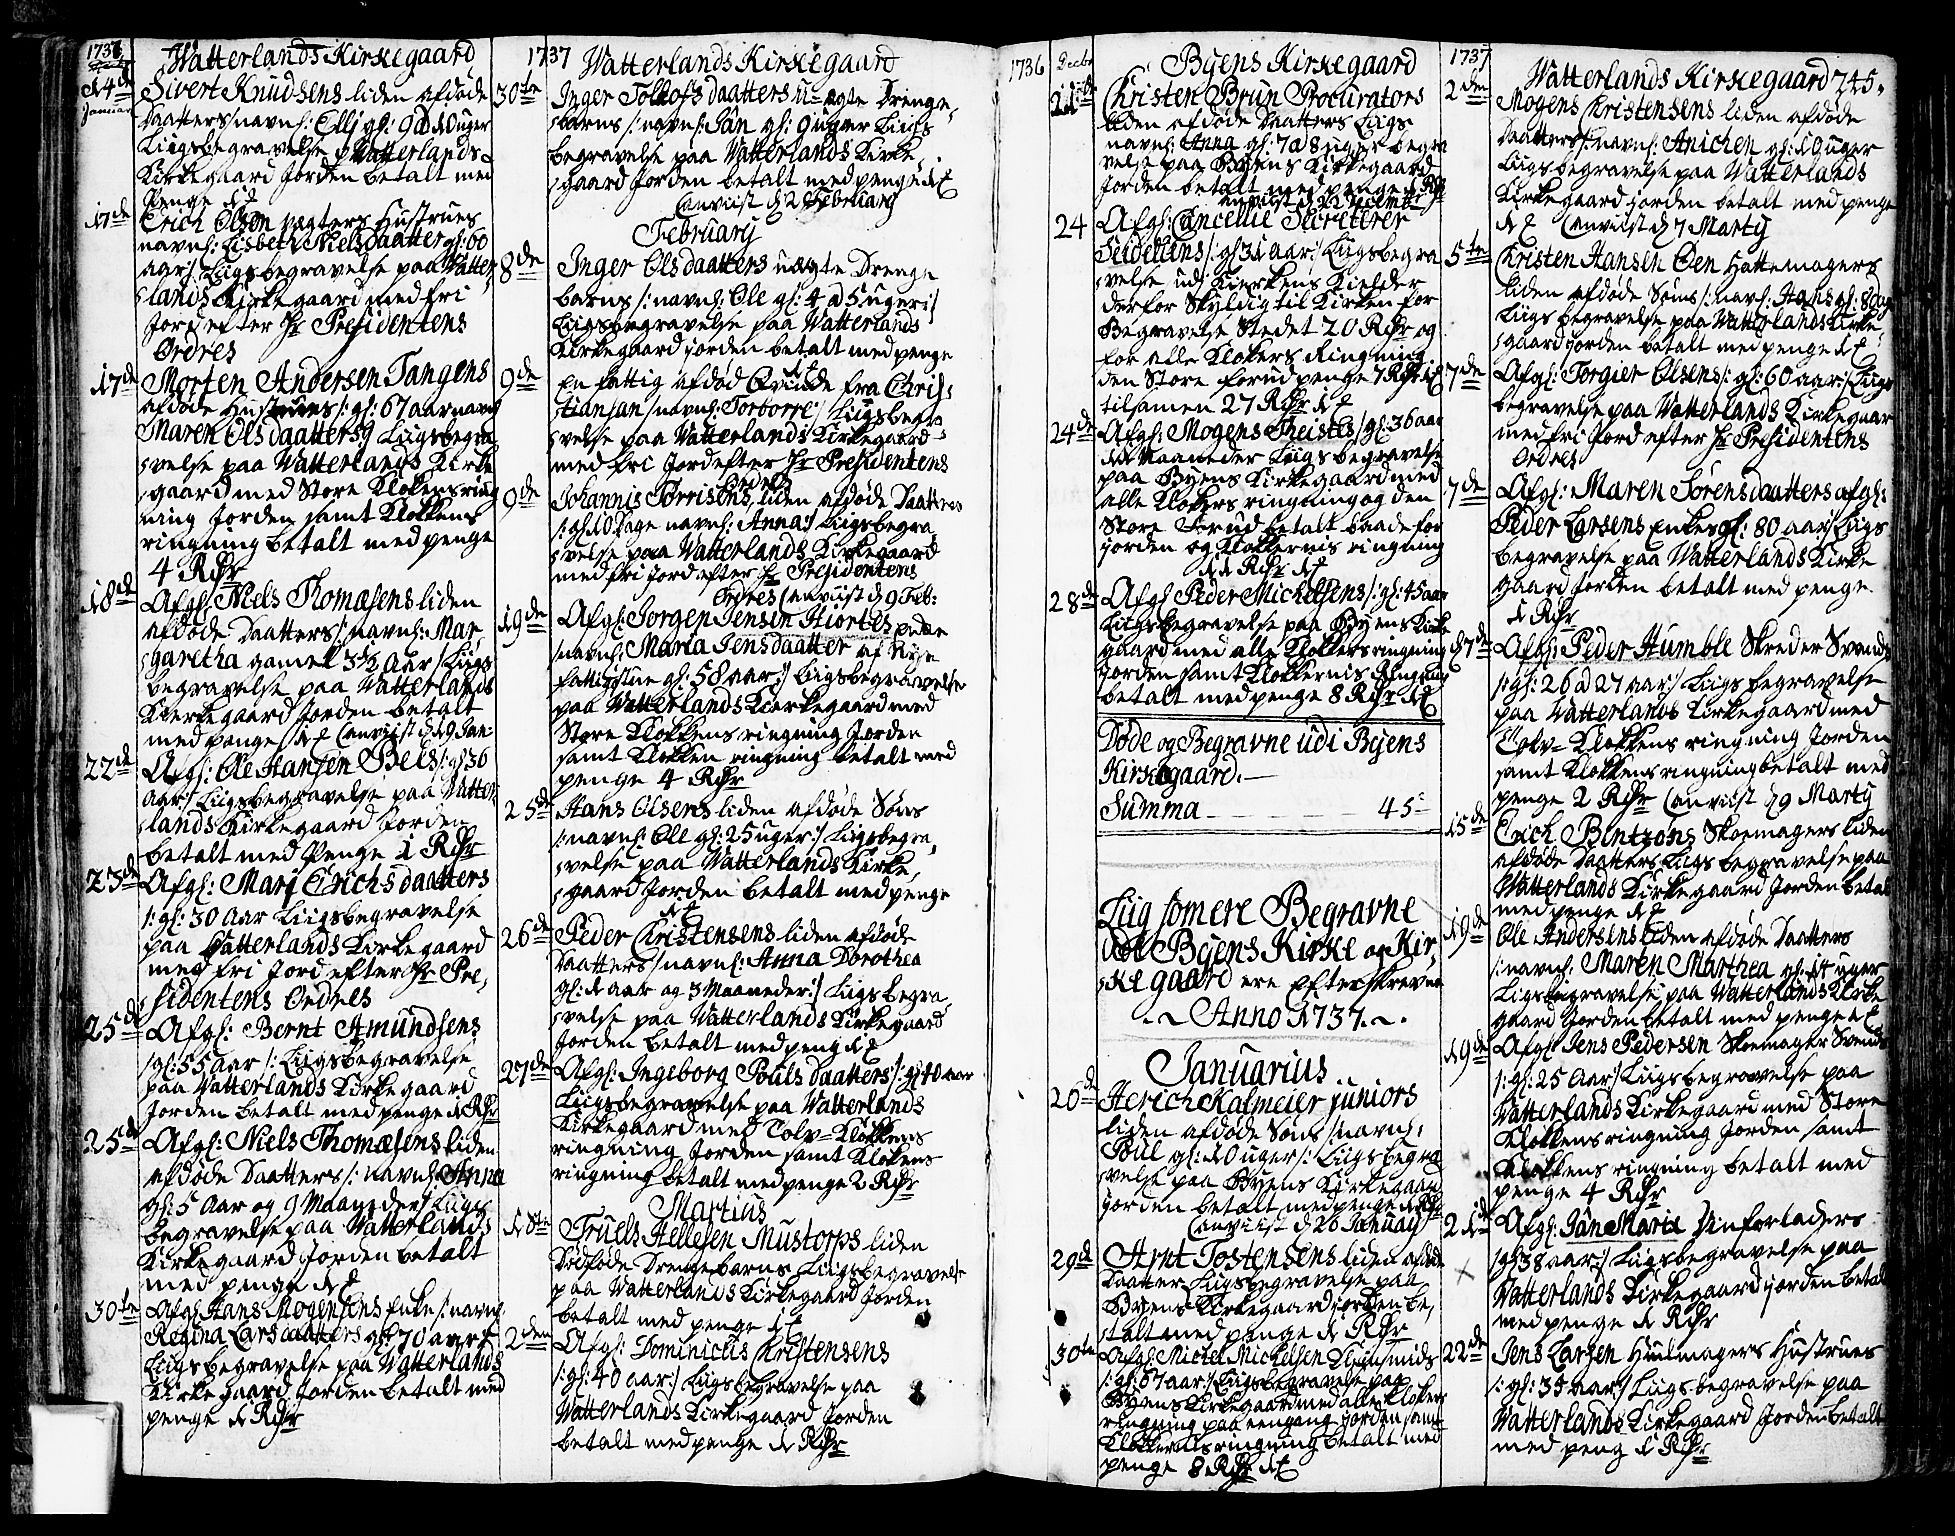 1737
Watterlands Kirkegaard
14de
Januar
Sivert Knudsens liden afdøde
Daatters navnl: Ellj gl: 9 a 10 uger
Liigsbegravelse paa Watterlands
Kirkegaard Jorden betalt med
Penge
17de
Erich Olsen Hustrues
navnl: Lisbeth Nielsdaatter gl: 60
aar:/ Liigsbegravelse paa Watter
lands Kirkegaard med fri
Jord efter Hr Presidentens
Ordres
17de
Morten Andersen Tangens
afdøde Hustrues /: gl: 67 aar navnl
Maren Olsdaatters Liigsbegra
velse paa Watterlands Kirke
gaard med Store Klokens ring
ning Jorden samt Klokkens
ringning betalt med penge
4 Rdr
18de
Afgl: Niels Thomæsens liden
afdøde Daatters /: navnl: Mar
garetha gamel 3 1/2 Aar / Liigs
begravelse paa Watterlands
Kierkegaard Jorden betalt
med penge anviist d 19 Jan:
22de
Afgl: Ole Hansen Bels /: gl 36
Aar:/ Liigsbegravelse paa Watter
lands Kirkegaard Jorden
betalt med Penge 1 Rdr
23de
Afgl: Marj Erichsdaatters
/: gl: 30 Aar Liigsbegravelse
paa Watterlands Kirkegaard
med fri Jord efter Hr Pre
sidentens Ordres
25de
Afgl: Bernt Amundsens
/ gl: 55 aar /: Liigsbegravelse
paa Watterlands Kirkegaard
Jorden betalt med penge 1 Rdr
25de
Afgl: Niels Thomæsens liden
afdøde Daatters /: navnl Anna
gl: 5 Aar og 9 Maaneder / Liigs
begravelse paa Watterlands
Kirkegaard Jorden betalt
med penge
30te
Afgl Hans Mogensens Enke /: navnl
Regina Larsdaatters gl: 70 aar
Liigsbegravelse paa Watterlands
Kirkegaard Jorden betalt med
penge 1 Rdr
1737
Watterlands Kirkegaard
30te
Inger Tollofsdaatters u-ægte Drenge
barns /: navnl: Jan gl: 9 uger Liigs
begravelse paa Watterlands Kirke
gaard Jorden betalt med penge
anviist d 2 February
February
8de
Inger Olsdaatters uægte Drenge
barns /: navnl: Ole gl: 4 a 5 uger:/
Liigsbegravelse paa Watterlands
Kirkegaard jorden betalt med penge
9de
En fattig afdød Qvinde fra Chris
tiansan /navnl: Torborre / Liigsbegra
velse paa Watterlands Kirkegaard
med fri Jord efter Hr Presidentens
Ordres
9de
Johannis Torrisens liden afdøde Daatters
/: gl: 10 Dage navnl: Anna:/ Liigsbegra
velse paa Watterlands Kirkegaard
med fri Jord efter Hr Presidentens
Ordres anviist d 9 Feb:
19de
Afgl: Jorgen Jensen Hiortes
/navnl: Maria Jensdaatter af
fattigstue gl: 58 aar:/ Liigsbegravelse
paa Watterlands Kierkegaard med
Store Klokkens ringning Jorden
samt Klokken ringning betalt med
penge 4 Rdr
25de
Hans Olsens liden afdøde Søns
/: navnl: Ole gl: 25 uger:/ Liigsbegra
velse paa Watterlands Kirke
gaard Jorden betalt med penge
26de
Peder Christensens liden afdøde
Daatters /navnl: Anna Dorothea
gl: 1 aar og 3 Maaneder:/ Liigsbegra
velse paa Watterlands Kirkegaard
Jorden betalt med penge
27de
Afgl: Ingeborg Poulsdaatters /: gl 40 aar
Liigsbegravelse paa Watterlands
Kirkegaard med Tolv-Klokkens
ringning Jorden samt Klokens
ringning betalt med penge 2 Rdr
Martius
18te
Truels Hellesen Mustorps liden
Dødføde Drengebarns Liigsbegravelse
paa Watterlands Kirkegaard Jorden
betalt med penge
2den
Afgl: Dominicus Christensens
/: gl: 40 aar:/ Liigsbegravelse paa
Watterlands Kirkegaard Jorden
betalt med penge 1 Rdr
1736
Decbr
Byens Kirkegaard
Christen Brun Procurators
liden afdøde Daatters Liigs
navnl: Anna gl: 7 a 8 uger begra
velse paa Byens Kirkegaard
Jorden betalt med penge 1 Rdr
24
Afgl: Cancellie Secreterer
Seideliens /: gl: 31 aar:/ Liigsbegra
velse udi Kierkens Kielder
derfor Skyldig til Kirken for
Begravelse Stedet 20 Rdr og
for alle Klokers Ringning
den Store forud penge 7 Rdr
tilsamen 27 Rdr
24de
Afgl: Mogens Theistes /gl: 36 aar
Maaneder Liigsbegravelse
paa Byens Kirkegaard med
alle Klokers ringning og den
Store Forud betalt baade for
jorden og Klokkernis ringning
11 Rdr
28de
Afgl Peder Michelsens /: gl: 45 aar
Liigsbegravelse paa Byens Kirke
gaard med alle Klokkers ringning
Jorden samt Klokkernis Ringning
betalt med penge 8 Rdr
Døde og Begravne udi Byens
Kirkegaard.
Summa 45
Liig somere Begravne
Byens Kirke og Kir
kegaard ere Efterskrevne
Anno 1737.
Januarius
26de
Herich Kalmeier juniors
liden afdøde Søns /: navnl:
Poul gl: 10 uger /: Liigsbegra
velse paa Byens Kirkegaard
jorden betalt med penge 1 Rdr
anviist d 26 January
29de
Arnt Tostensens liden afdøde
Daatter Liigsbegravelse paa
Byens Kirkegaard jorden be
talt med penge 1 Rdr
30te
Afgl: Michel Mickelsen
/: gl: 67 aar:/ Liigsbegravelse paa
Byens Kirkegaard med alle Klokers
ringning paa eengang Jorden samt
Klokkernis ringning betalt med
penge 8 Rdr
1737
Watterlands Kirkegaard 745.
2den
Mogens Christensens liden afdøde
Daatters /: navnl: Anichen gl: 10 uger
Liigsbegravelse paa Watterlands
Kirkegaard jorden betalt med penge
anviist d 7 Marty
5te
Christen Hansen Øen Hattemagers
liden afdøde Søns /: navnl: Hans gl: 8 dage
Liigsbegravelse paa Watterlands Kirke
gaard jorden betalt med penge
7de
Afgl: Torgier Olsens /: gl: 60 aar:/ Liigs
begravelse paa Watterlands Kirkegaar
med fri Jord efter Hr Presidentens
Ordres
7de
Afgl: Maren Sorensdaatters afgl:
Peder Larsens Enkes gl: 80 aar:/ Liigs
begravelse paa Watterlands Kirke
gaard Jorden betalt med penge
1 Rdr
7de
Afgl: Peder Humble Skreder Svends
/: gl: 26 a 27 aar:/ Liigsbegravelse
paa Watterlands Kirkegaard med
Tolv-Klokkens ringning Jorden
samt Klokkens ringning betalt med
penge 2 Rdr anviist d 9 Marty
15de
Erich Bentzons Skoemagers liden
afdøde Daatters Liigsbegravelse paa
Watterlands Kirkegaard Jorden betal
med penge
19de
Ole Andersens liden afdøde Daatters
/: navnl: Maren Marthea gl: uger
Liigsbegravelse paa Watterlands Kirke
gaard Jorden betalt med penge
19de
Afgl Jens Pedersen Skoemager Svends
/: gl: 25 Aar:/ Liigsbegravelse paa
Watterlands Kirkegaard med Store
Klokkens ringning Jorden samt
Klokkens ringning betalt med
penge 4 Rdr
21de
Afgl: Jane Maria
/gl 38 aar:/ Liigsbegravelse paa
Watterlands Kirkegaard jorden betal
med penge 1 Rdr
22de
Jens Larsen Huulmagers Hustrues
/: gl: 35 aar:/ Liigsbegravelse paa
Watterlands Kirkegaard Jorden betalt
med peng 1 Rdr